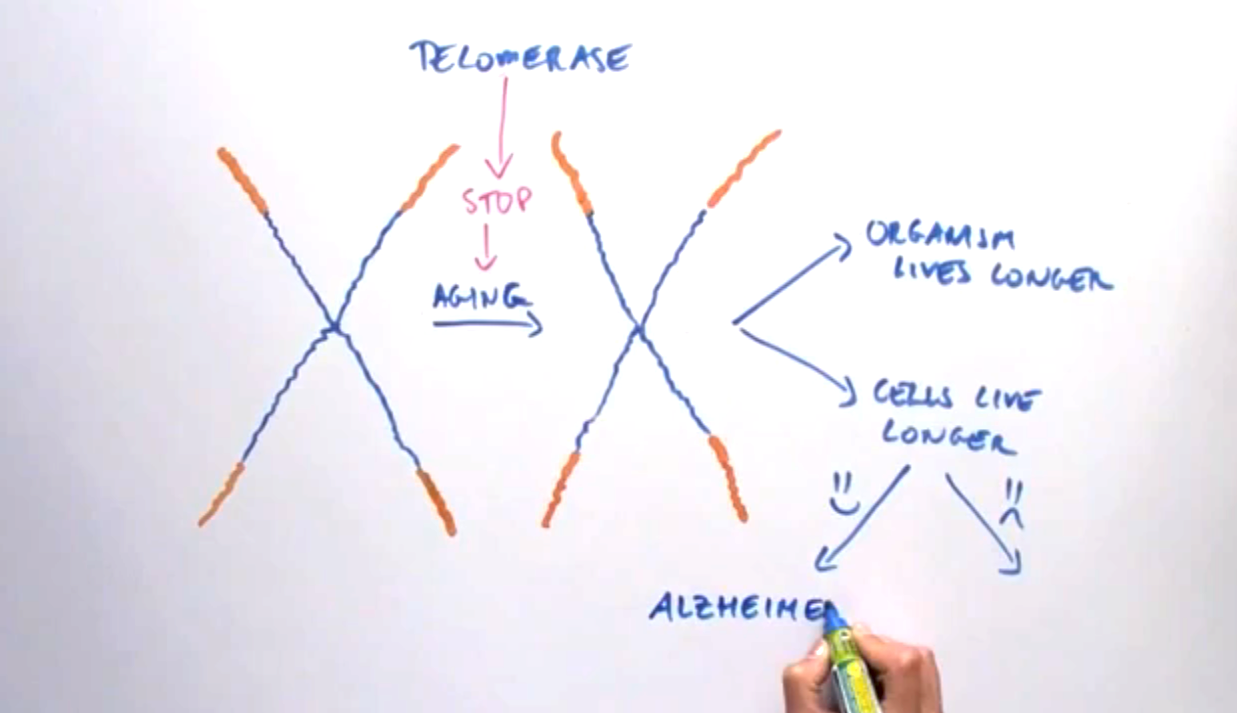 TELOMERASE
STOP
AGING
ORGANISM
LIVES LONGER
CELLS LIVE
LONGER
ALZHEIME